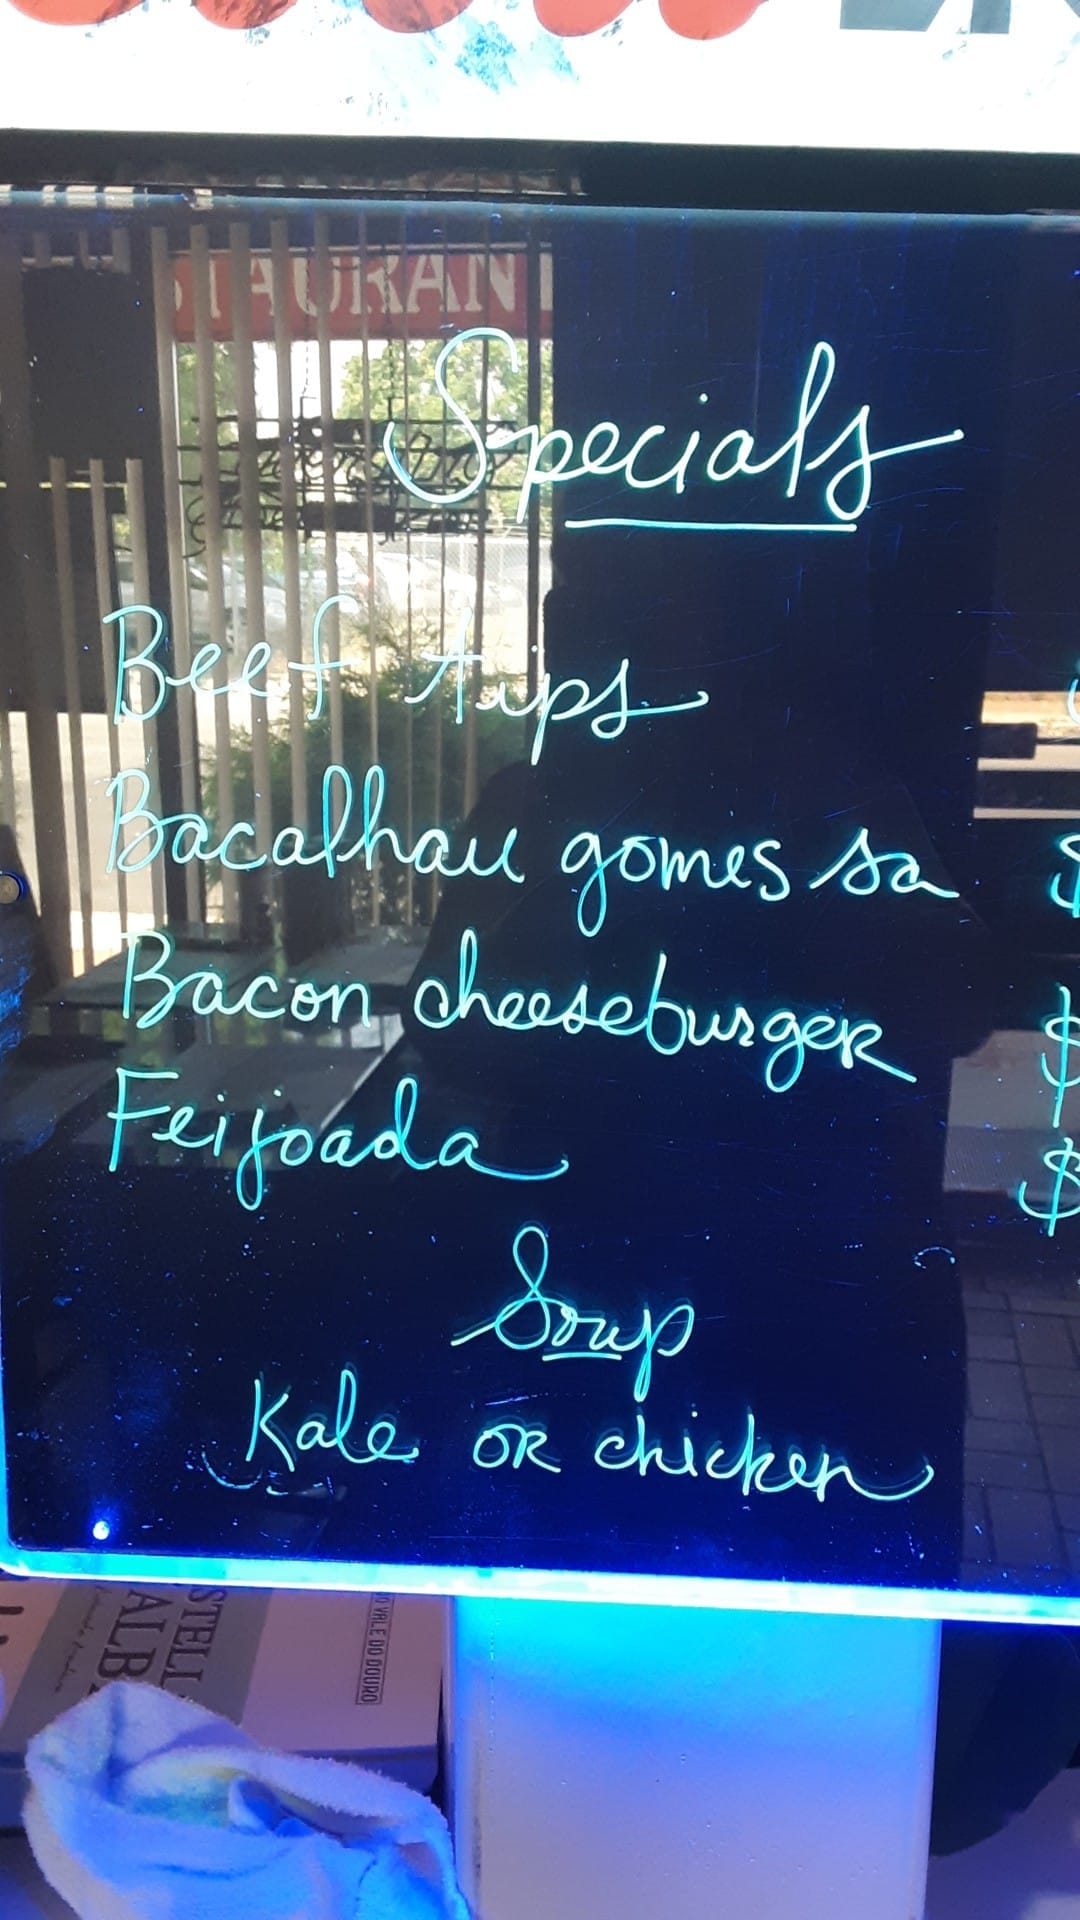 STAURAN
Specials
Beef tips
Bacalhau gomes sa $
Bacon cheeseburger $
Feijoada $
Soup
Kale or chicken
STELL
ALB
VALE DO DOURO